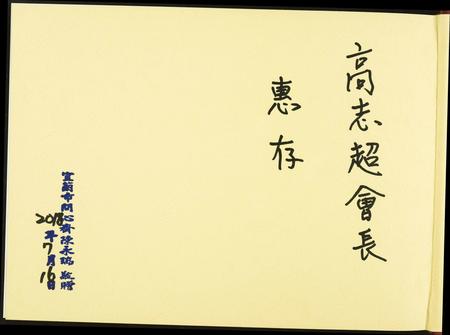 高志超會長
惠存
宜蘭市問心齋陳永瑞敬贈
2018年7月16日